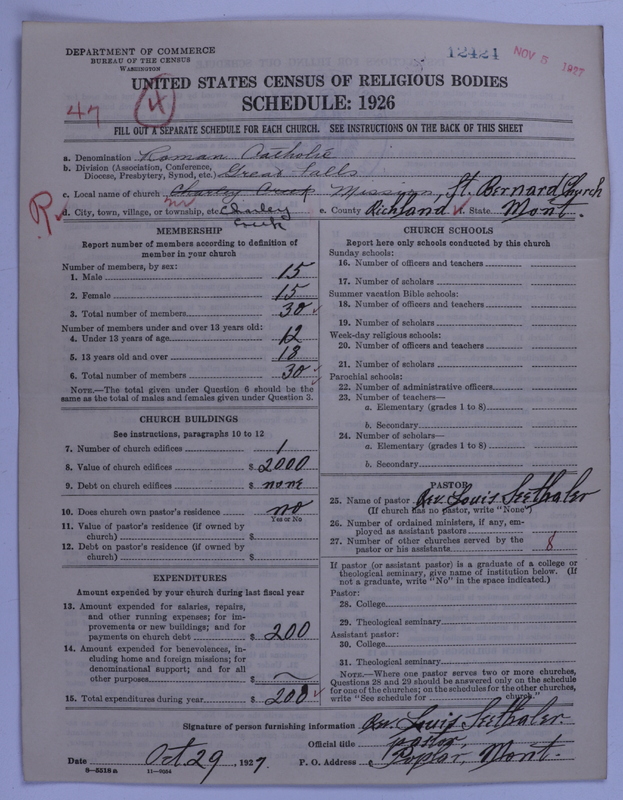 DEPARTMENT OF COMMERCE
BUREAU OF THE CENSUS
WASHINGTON
12424
NOV 5 1927
UNITED STATES CENSUS OF RELIGIOUS BODIES
SCHEDULE: 1926
47
4
FILL OUT A SEPARATE SCHEDULE FOR EACH CHURCH. SEE INSTRUCTIONS ON THE BACK OF THIS SHEET
a. Denomination Roman Catholic
b. Division (Association, Conference, Diocese, Presbytery, Synod, etc.) Great Falls
c. Local name of church Charley Creek Mission, St. Bernard Church
R
d. City, town, village, or township, etc. Charley Creek e. County Richland State Mont.
MEMBERSHIP
Report number of members according to definition of member in your church
Number of members, by sex:
1. Male 15
2. Female 15
3. Total number of members 30
Number of members under and over 13 years old:
4. Under 13 years of age 12
5. 13 years old and over 18
6. Total number of members 30
NOTE.—The total given under Question 6 should be the same as the total of males and females given under Question 3.
CHURCH BUILDINGS
See instructions, paragraphs 10 to 12
7. Number of church edifices 1
8. Value of church edifices $ 2000
9. Debt on church edifices $ none
10. Does church own pastor's residence no
Yes or No
11. Value of pastor's residence (if owned by church) $
12. Debt on pastor's residence (if owned by church) $
EXPENDITURES
Amount expended by your church during last fiscal year
13. Amount expended for salaries, repairs, and other running expenses; for improvements or new buildings; and for payments on church debt $ 200
14. Amount expended for benevolences, including home and foreign missions; for denominational support; and for all other purposes $
15. Total expenditures during year $ 200
CHURCH SCHOOLS
Report here only schools conducted by this church
Sunday schools:
16. Number of officers and teachers
17. Number of scholars
Summer vacation Bible schools:
18. Number of officers and teachers
19. Number of scholars
Week-day religious schools:
20. Number of officers and teachers
21. Number of scholars
Parochial schools:
22. Number of administrative officers
23. Number of teachers—
a. Elementary (grades 1 to 8)
b. Secondary
24. Number of scholars—
a. Elementary (grades 1 to 8)
b. Secondary
PASTOR
25. Name of pastor Rev. Louis Seethaler
(If church has no pastor, write "None")
26. Number of ordained ministers, if any, employed as assistant pastors
27. Number of other churches served by the pastor or his assistants 8
If pastor (or assistant pastor) is a graduate of a college or theological seminary, give name of institution below. (If not a graduate, write "No" in the space indicated.)
Pastor:
28. College
29. Theological seminary
Assistant pastor:
30. College
31. Theological seminary
NOTE.—Where one pastor serves two or more churches, Questions 28 and 29 should be answered only on the schedule for one of the churches; on the schedules for the other churches, write "See schedule for church."
Signature of person furnishing information Rev. Louis Seethaler
Official title pastor,
Date Oct 29, 1927. P. O. Address Poplar, Mont.
8—5518a 11—9054